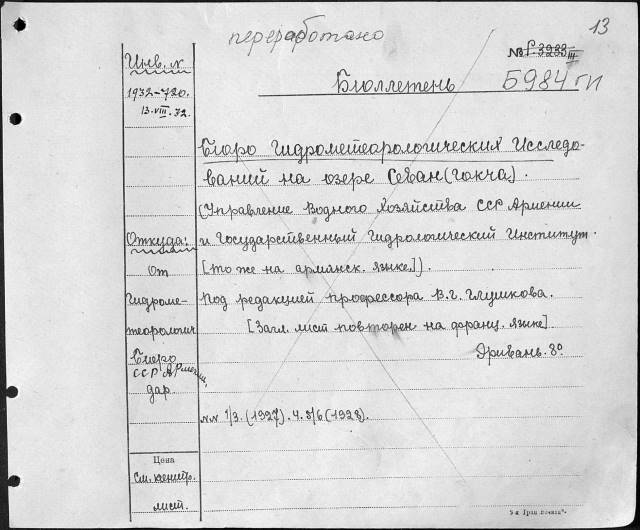 переработано
13
№ Р. 3233 III
Б984 ГИ
Бюллетень
Инв. №
1932-720.
13.VIII.32.
Бюро Гидрометеорологических Исследо-
ваний на озере Севан (Гокча).
(Управление Водного Хозяйства ССР Армении
и Государственный Гидрологический Институт.
[то же на армянск. языке]).
Под редакцией профессора В.Г. Глушкова.
[Загл. лист повторен на франц. языке].
Эривань. 8°.
№№ 1/3. (1927). 4. 5/6 (1928).
Откуда:
От
Гидроме-
теорологич.
Бюро
ССР Армении,
дар.
Цена
См. конт.
лист.